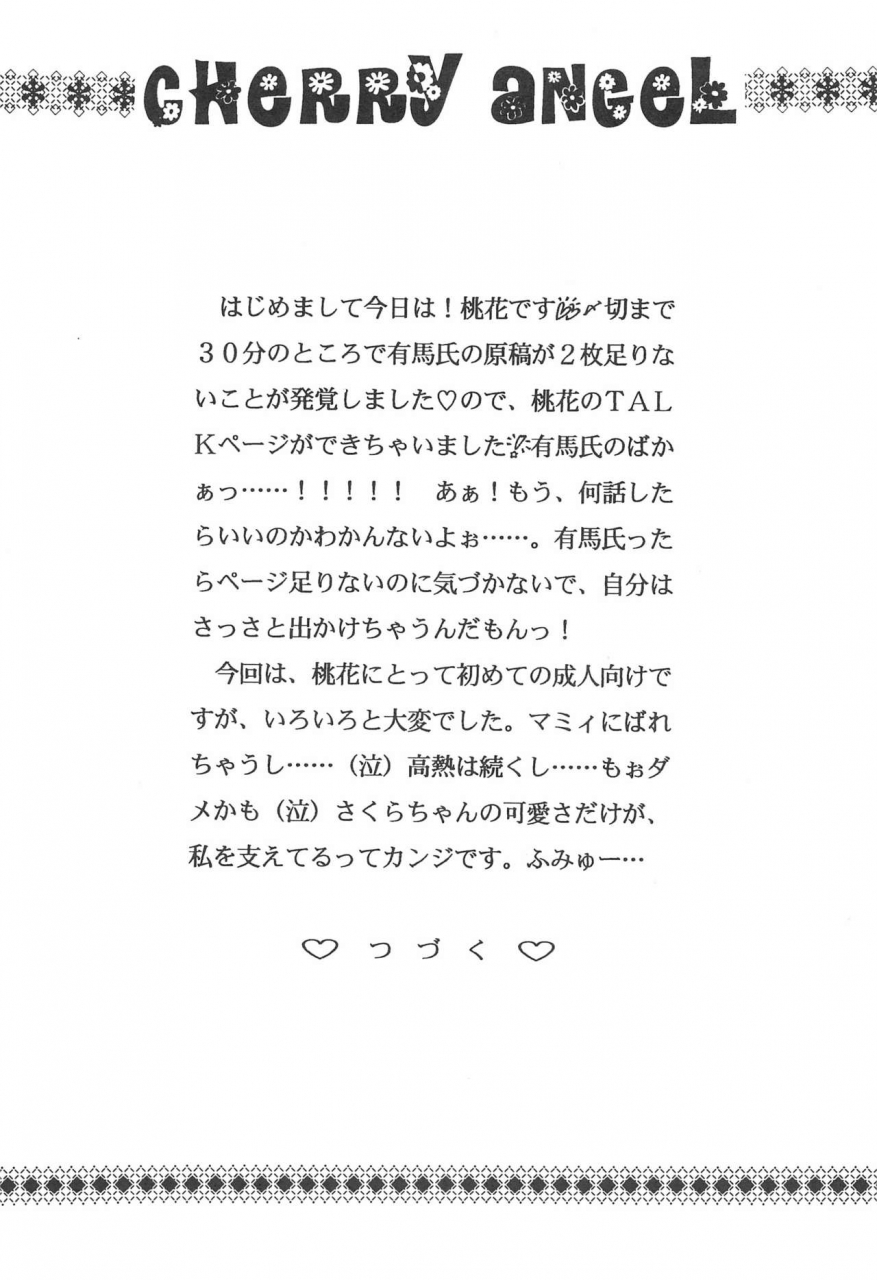 CHERRY ANGEL
はじめまして今日は！桃花です💦〆切まで
３０分のところで有馬氏の原稿が２枚足りな
いことが発覚しました♡ので、桃花のＴＡＬ
Ｋページができちゃいました💦有馬氏のばか
ぁっ……！！！！！　あぁ！もう、何話した
らいいのかわかんないよぉ……。有馬氏った
らページ足りないのに気づかないで、自分は
さっさと出かけちゃうんだもんっ！
今回は、桃花にとって初めての成人向けで
すが、いろいろと大変でした。マミィにばれ
ちゃうし……（泣）高熱は続くし……もぉダ
メかも（泣）さくらちゃんの可愛さだけが、
私を支えてるってカンジです。ふみゅー…
♡ つ づ く ♡